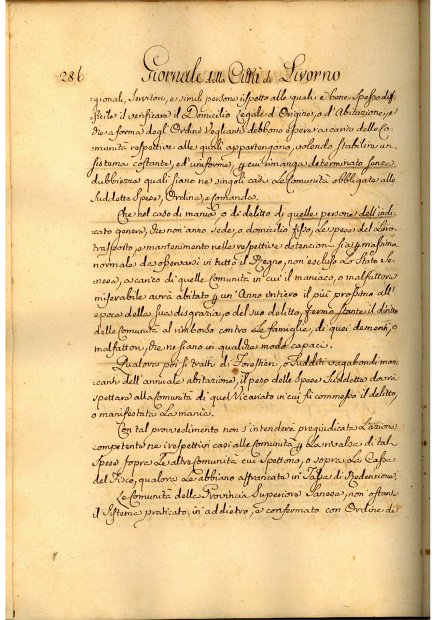 286 Giornale della Città di Livorno
gionali, Servitori, e simili persone rispetto alle quali è bene spesso dif-
ficile il verificare il Domicilio Legale d'Origine, o d'Abitazione, e
che a forma degl'Ordini Veglianti debbono essere a carico delle Co-
munità respettive alle quali appartengono, volendo stabilire un
sistema costante, ed uniforme, p cui rimanga determinato senza
dubbiezza quali siano nei singoli casi Le Comunità obbligate alle
Suddette Spese, Ordina, e Comanda.
Che nel caso di mania, o di delitto di quelle persone dell'indi-
cato genere, che non anno sede, o domicilio fisso, Le spese del Loro
trasporto, e mantenimento nelle respettive detenzioni sia p massima
normale da osservarsi in tutto il Regno, non escluso Lo Stato Se-
nese, a carico di quelle Comunità in cui il maniaco, o malfattore
miserabile avrà abitato p un'Anno intiero il più prossimo all'
epoca della sua disgrazia, o del suo delitto, ferma stante il diritto
delle Comunità al rimborso contro Le famiglie, di quei dementi, o
malfattori, che ne siano in qualche modo capaci.
Qualora poi si tratti di Forestieri, o Sudditi vagabondi man-
canti dell'annuale abitazione, il peso delle Spese Suddette dovrà
spettare alla Comunità di quel Vicariato in cui fù commesso il delitto,
o manifestata La mania.
Con tal provvedimento non s'intenderà pregiudicata L'azione
competente nei respettivi casi alle Comunità p La rivalsa di tali
Spese sopra Le altre Comunità cui Spettono, o sopra La Cassa
del Fisco, qualora Le abbiano affrancate in Tassa di Redenzione.
Le Comunità della Provincia Superiore Sanese, non ostante
il Sistema praticato in addietro, e confermato con Ordine de'